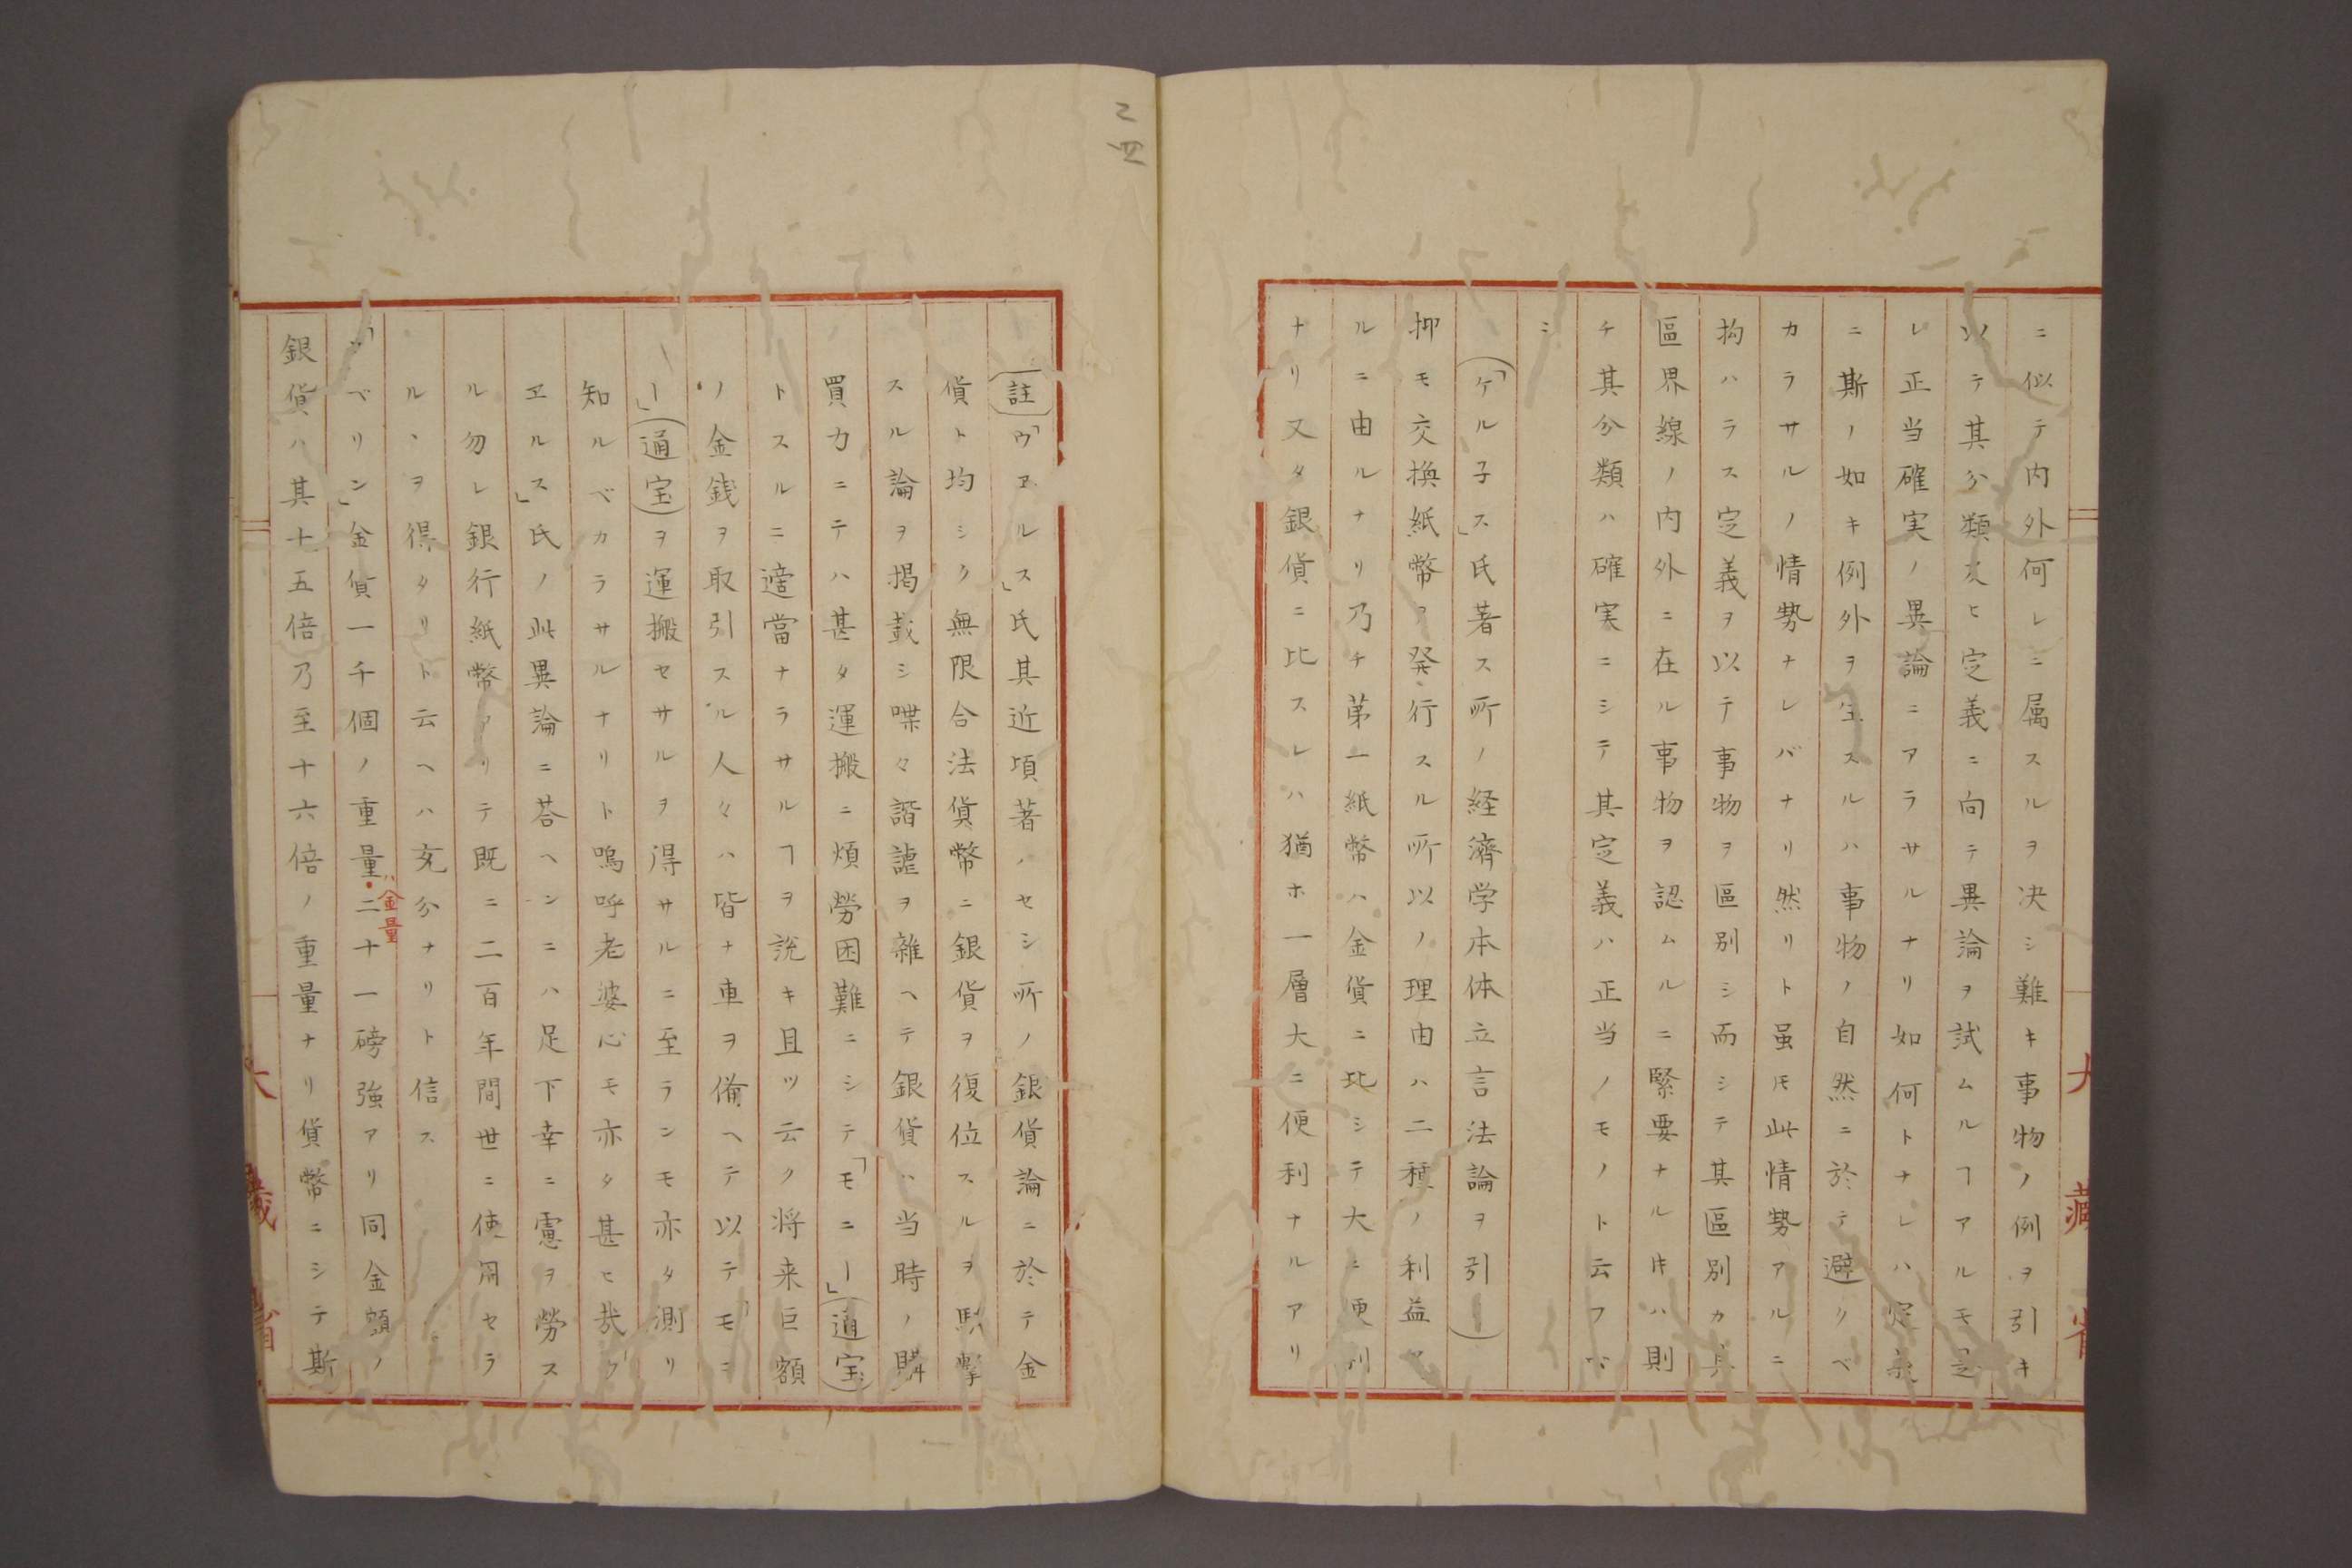 ニ似テ内外何レニ属スルヲ決シ難キ事物ノ例ヲ引キ
以テ其分類及ヒ定義ニ向テ異論ヲ試ムルヿアルモ是
レ正当確実ノ異論ニアラサルナリ如何トナレハ定義
ニ斯ノ如キ例外ヲ生スルハ事物ノ自然ニ於テ避クベ
カラサルノ情勢ナレバナリ然リト虽𪜈此情勢アルニ
拘ハラス定義ヲ以テ事物ヲ區別シ而シテ其區別カ其
區界線ノ内外ニ在ル事物ヲ認ムルニ緊要ナル𪜈ハ則
チ其分類ハ確実ニシテ其定義ハ正当ノモノト云フベ
シ
(「ケル子ス」氏著ス所ノ経濟学本体立言法論ヲ引ー)
抑モ交換紙幣ヲ発行スル所以ノ理由ハ二種ノ利益ア
ルニ由ルナリ乃チ第一紙幣ハ金貨ニ比シテ大ニ便利
ナリ又タ銀貨ニ比スレハ猶ホ一層大ニ便利ナルアリ
大藏省
二四
(註)「ウヱルス」氏其近項著ノセシ所ノ銀貨論ニ於テ金
貨ト均シク無限合法貨幣ニ銀貨ヲ復位スルヲ駁撃
スル論ヲ掲載シ喋々諧謔ヲ雜ヘテ銀貨ハ当時ノ購
買力ニテハ甚タ運搬ニ煩勞困難ニシテ「モニー」(通宝)
トスルニ適當ナラサルヿヲ説キ且ツ云ク将来巨額
ノ金銭ヲ取引スル人々ハ皆ナ車ヲ備ヘテ以テ「モニ
ー」(通宝)ヲ運搬セサルヲ得サルニ至ランモ亦タ測リ
知ルベカラサルナリト嗚呼老婆心モ亦タ甚ヒ哉「ウ
ヱルス」氏ノ此異論ニ荅ヘンニハ足下幸ニ憲ヲ勞ス
ル勿レ銀行紙幣アリテ既ニ二百年間世ニ使用セラ
ルヽヲ得タリト云ヘハ充分ナリト信ス
「ソベリン」金貨一千個ノ重量ハ金量二十一磅強アリ同金額ノ
銀貨ハ其十五倍乃至十六倍ノ重量ナリ貨幣ニシテ斯
大藏省